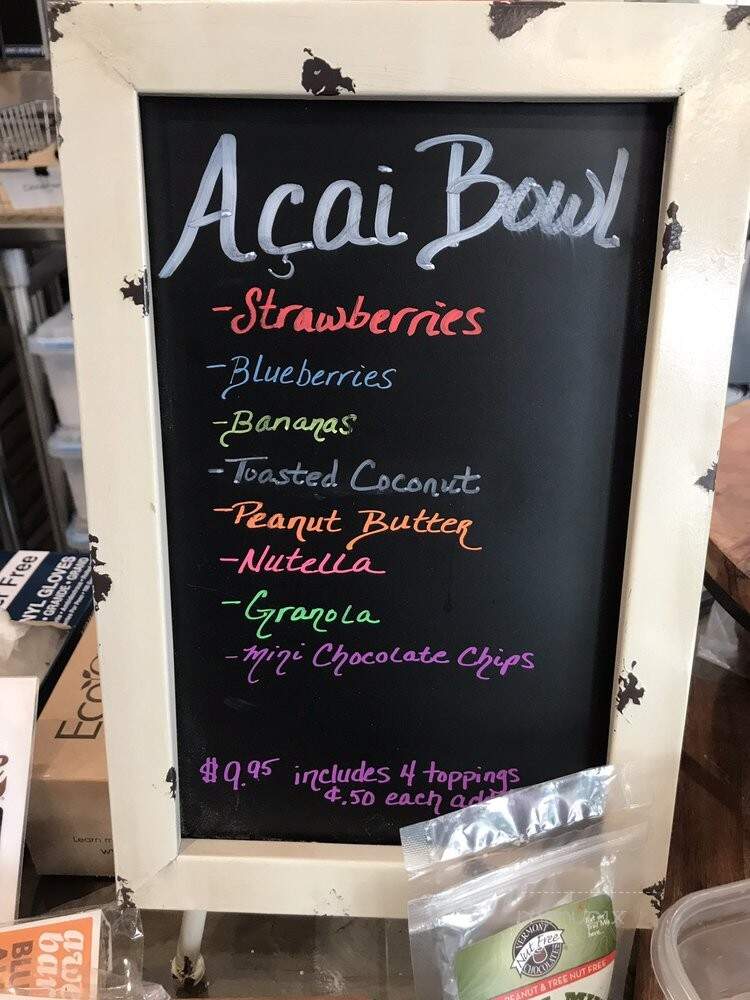 Açai Bowl
-Strawberries
-Blueberries
-Bananas
-Toasted Coconut
-Peanut Butter
-Nutella
-Granola
-Mini Chocolate Chips
$9.95 includes 4 toppings
¢.50 each
Free
NYL GLOVES
Eco
Learn
VERMONT
Nut Free
CHOCOLATE
PEANUT & TREE NUT FREE